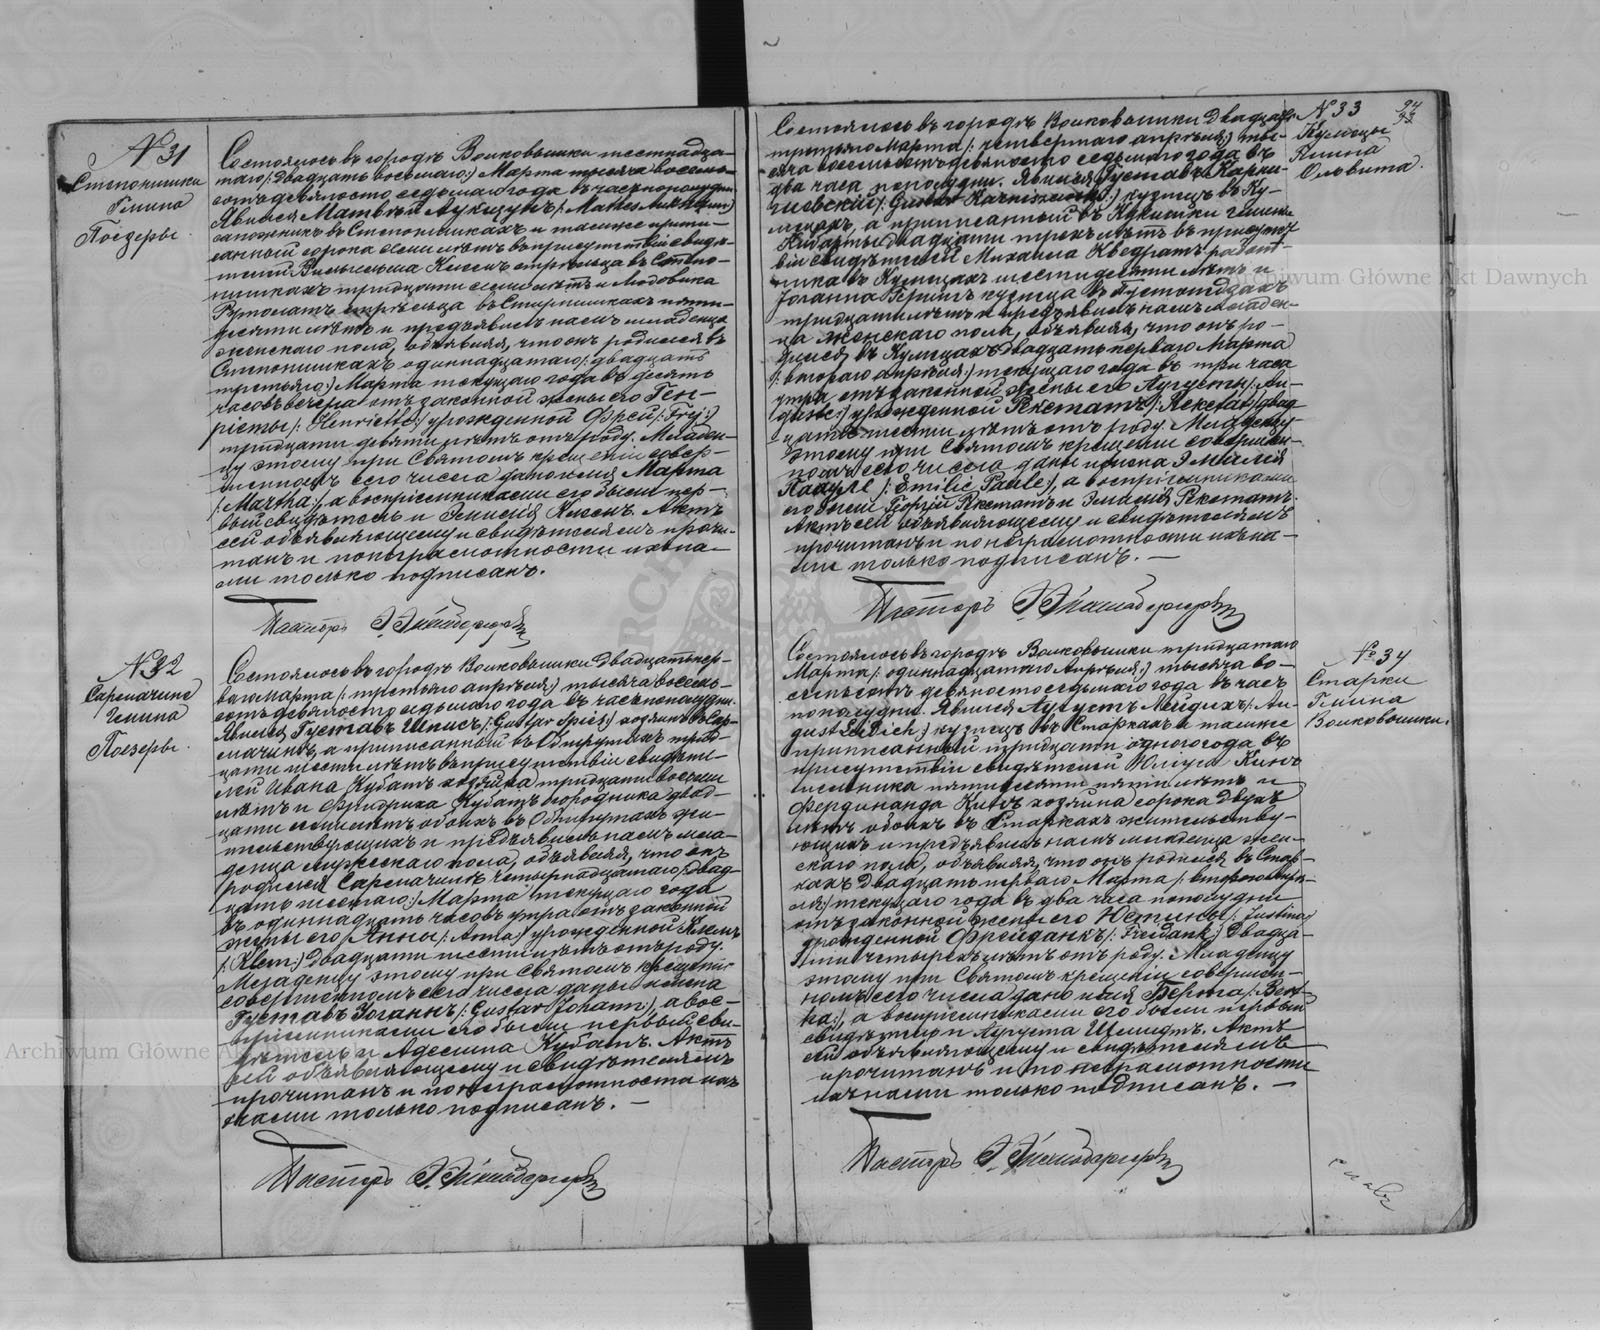 № 31
Степонишки
Гмина
Поезеры.
Состоялось въ городѣ Волковышки шестнадца-
таго /: двадцать восьмаго :/ Марта тысяча восемь-
сотъ девяносто седьмаго года въ часъ пополудни.
Явился Матвѣй
сапожникъ въ Степонишкахъ и тамже припи-
санный сорока семи лѣтъ въ присутствіи свидѣ-
телей Вильгельма стрѣльца въ Степо-
нишкахъ тридцати семи лѣтъ и Людовика
стрѣльца въ пяти-
десяти лѣтъ и предъявилъ намъ младенца
женскаго пола, объявляя, что онъ родился въ
Степонишкахъ одиннадцатаго /: двадцать
третьяго :/ Марта текущаго года въ десять
часовъ вечера отъ законной жены его Ген-
рieты /: Henriette :/ урожденной Фрей /: Frej :/
тридцати девяти лѣтъ отъ роду. Младен-
цу этому при Святомъ крещеніи совер-
шенномъ сего числа дано имя Марта
/: Martha :/, а воспріемниками его были пер-
вый свидѣтель и Эмилія Актъ
сей объявляющему и свидѣтелямъ прочи-
танъ и по неграмотности ихъ на-
ми только подписанъ.
Пасторъ
№ 32
Гмина
Поезеры.
Состоялось въ городѣ Волковышки двадцать пер-
ваго Марта /: третьяго апрѣля :/ тысяча восемь-
сотъ девяносто седьмаго года въ часъ пополудни.
Явился Густавъ Шписъ /: Gustav Spies :/ хозяинъ въ Сар-
мачинѣ, а приписанный въ Обшрутахъ трид-
цати шести лѣтъ въ присутствіи свидѣте-
лей Ивана Кубатъ хозяина тридцати восьми
лѣтъ и Фридриха Кубатъ огородника двад-
цати семи лѣтъ обоихъ въ Обшрутахъ жи-
тельствующихъ и предъявилъ намъ мла-
денца мужескаго пола, объявляя, что онъ
родился Сармачинѣ четырнадцатаго /: двад-
цать шестаго :/ Марта текущаго года
въ одиннадцать часовъ утра отъ законной
жены его Анны /: Anna :/ урожденной Клемъ
/: Klem :/ двадцати шести лѣтъ отъ роду.
Младенцу этому при Святомъ крещеніи
совершенномъ сего числа даны имена
Густавъ Іоганъ /: Gustav Johann :/, а вос-
пріемниками его были первый сви-
дѣтель и Аделина Кубатъ. Актъ
сей объявляющему и свидѣтелямъ
прочитанъ и по неграмотности ихъ
нами только подписанъ. —
Пасторъ
№ 33
94
93
Гмина
Ольвита.
Состоялось въ городѣ Волковышки двадцать
третьяго Марта /: четвертаго апрѣля :/ ты-
сяча восемьсотъ девяносто седьмаго года въ
два часа пополудни. Явился Густавъ Карни-
шевскій /: Gustav :/ кузнецъ въ Ку-
мецахъ, а приписанный въ Кукишки гмины
Кибарты двадцати трехъ лѣтъ въ присутст-
віи свидѣтелей Михаила Кведратъ работ-
ника въ Кумецахъ шестидесяти лѣтъ и
Іоганна Герингъ кузнеца въ
тридцати лѣтъ и предъявилъ намъ младен-
ца женскаго пола, объявляя, что онъ ро-
дился въ Кумецахъ двадцать перваго Марта
/: втораго апрѣля :/ текущаго года въ три часа
утра отъ законной жены его Августы /: Au-
guste :/ урожденной Рекстатъ /: Rekstat :/ двад-
цати шести лѣтъ отъ роду. Младенцу
этому при Святомъ крещеніи совершен-
номъ сего числа даны имена Эмилія
Пауле /: Emilie Paule :/, а воспріемниками
его были Георгій Рекстатъ и Эмилія Рекстатъ.
Актъ сей объявляющему и свидѣтелямъ
прочитанъ и по неграмотности ихъ на-
ми только подписанъ. —
Пасторъ
№ 34
Старки
Гмина
Волковышки.
Состоялось въ городѣ Волковышки тридцатаго
Марта /: одиннадцатаго Апрѣля :/ тысяча во-
семьсотъ девяносто седьмаго года въ часъ
пополудни. Явился Августъ Лейдихъ /: Au-
gust Leidich :/ кузнецъ въ Старкахъ и тамже
приписанный тридцати одного года въ
присутствіи свидѣтелей
пятидесяти пяти лѣтъ и
Фердинанда хозяина сорока двухъ
лѣтъ обоихъ въ Старкахъ жительству-
ющихъ и предъявилъ намъ младенца жен-
скаго пола, объявляя, что онъ родился въ Стар-
кахъ двадцать перваго Марта /: втораго Апрѣ-
ля :/ текущаго года въ два часа пополудни
отъ законной жены его Юстины /: Justine :/
урожденной Фрейданкъ /: Freidank :/ двадца-
ти четырехъ лѣтъ отъ роду. Младенцу
этому при Святомъ крещеніи совершен-
номъ сего числа дано имя Берта /: Bert-
ha :/, а воспріемниками его были первый
свидѣтель и Августа Шмидтъ. Актъ
сей объявляющему и свидѣтелямъ
прочитанъ и по неграмотности
ихъ нами только подписанъ. —
Пасторъ
Archiwum Główne Akt Dawnych
Archiwum Główne Akt Dawnych